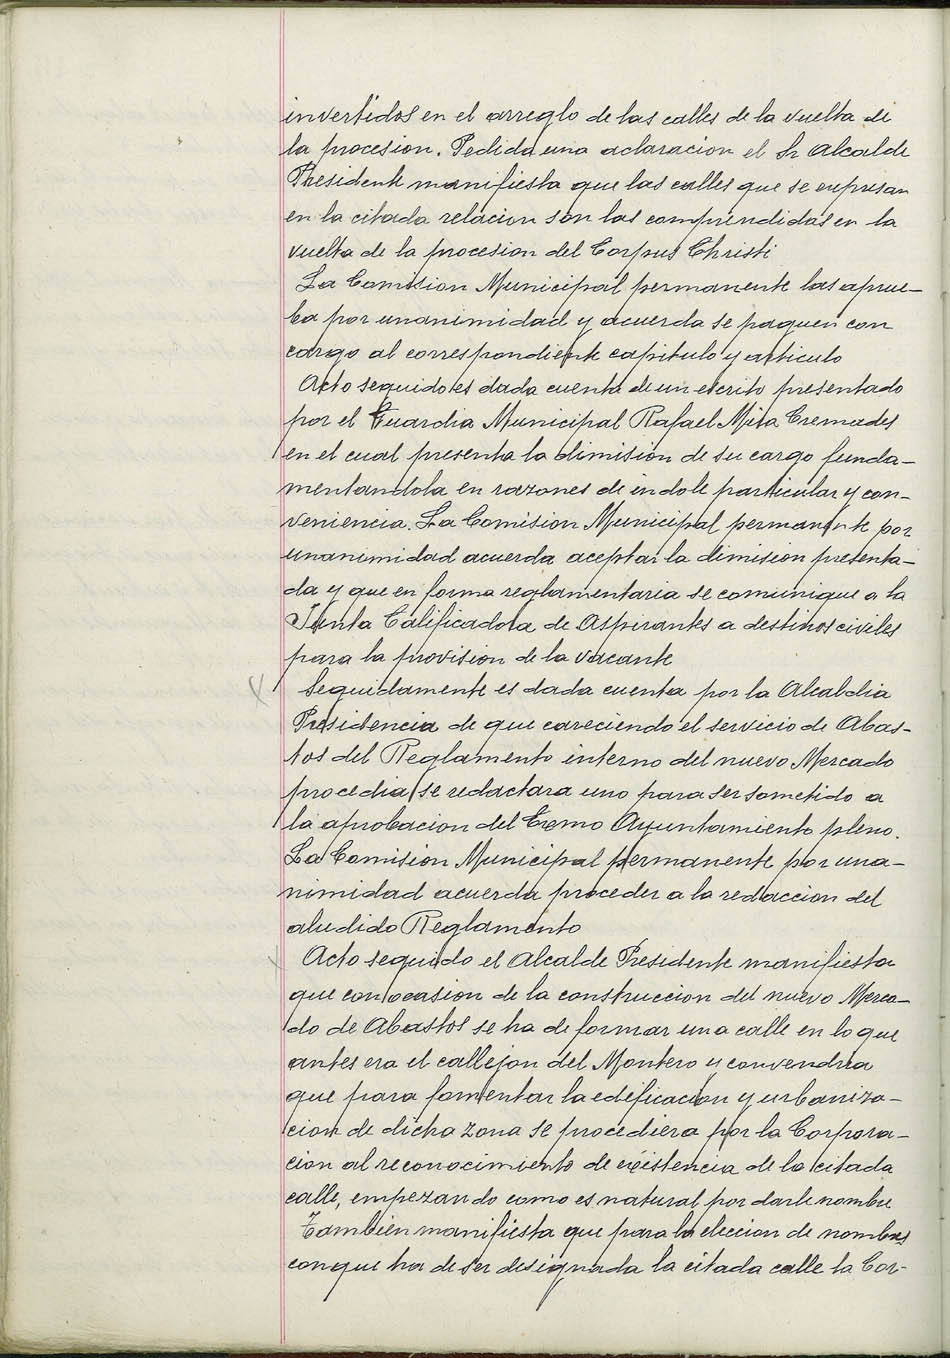 invertidos en el arreglo de las calles de la vuelta de
la procesion. Pedida una aclaracion el Sr Alcalde
Presidente manifiesta que las calles que se expresan
en la citada relacion son las comprendidas en la
vuelta de la procesion del Corpus Christi
La Comision Municipal permanente las aprue-
ba por unanimidad y acuerda se paguen con
cargo al correspondiente capitulo y articulo
Acto seguido es dada cuenta de un escrito presentado
por el Guardia Municipal Rafael Mira Cremades
en el cual presenta la dimision de su cargo funda-
mentandola en razones de indole particular y con-
veniencia. La Comision Municipal permanente por
unanimidad acuerda aceptar la dimision presenta-
da y que en forma reglamentaria se comunique a la
Junta Calificadora de Aspirantes a destinos civiles
para la provision de la vacante
Seguidamente es dada cuenta por la Alcaldia
Presidencia de que careciendo el servicio de Abas-
tos del Reglamento interno del nuevo Mercado
procedia se redactara uno para ser sometido a
la aprobacion del Excmo Ayuntamiento pleno.
La Comision Municipal permanente por una-
nimidad acuerda proceder a la redaccion del
aludido Reglamento
Acto seguido el Alcalde Presidente manifiesta
que con ocasion de la construccion del nuevo Merca-
do de Abastos se ha de formar una calle en lo que
antes era el callejon del Montero y convendria
que para fomentar la edificacion y urbaniza-
cion de dicha zona se procediera por la Corpora-
cion al reconocimiento de existencia de la citada
calle, empezando como es natural por darle nombre
Tambien manifiesta que para la eleccion de nombres
con que ha de ser designada la citada calle la Cor-